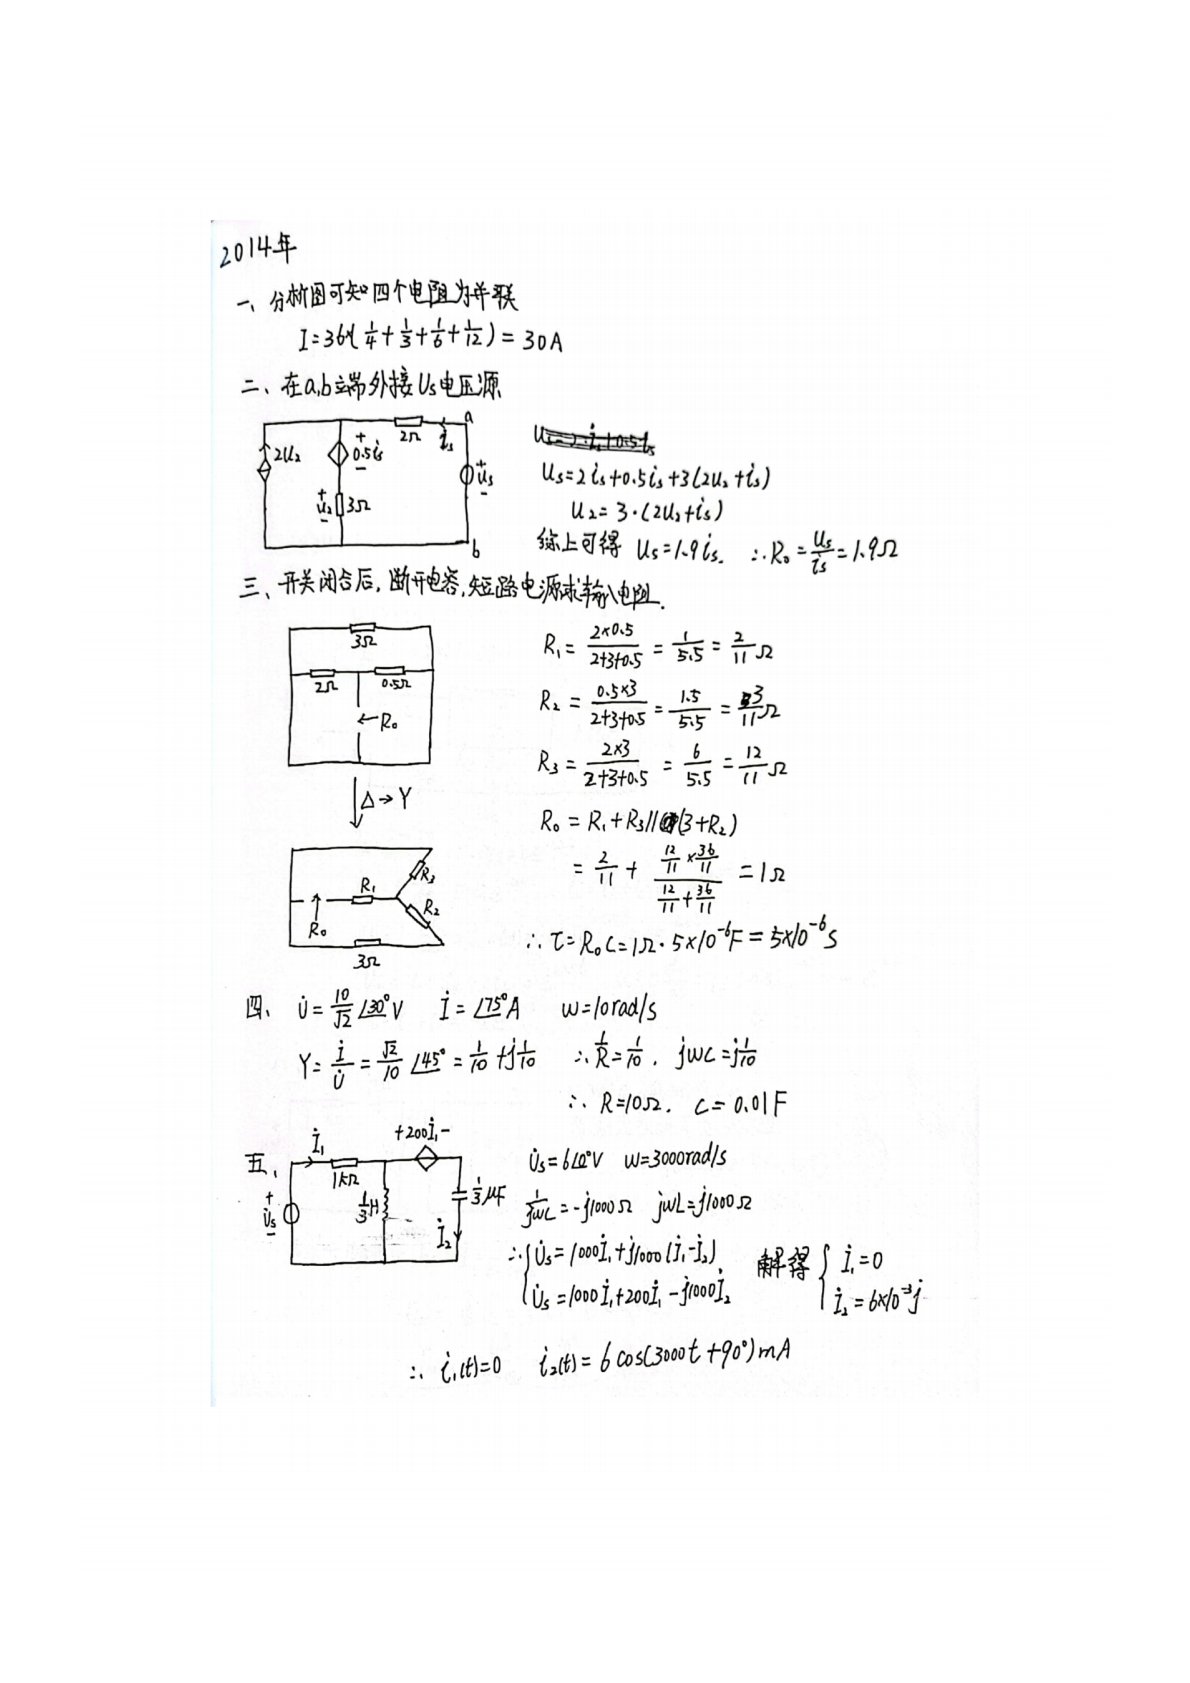 2014年
一、分析图可知四个电阻为并联
I=36×(1/4+1/3+1/6+1/12)=30A
二、在a,b端外接Us电压源
2U₂ + 0.5is - 2Ω is a + Us - + U₂ - 3Ω b
Us=2is+0.5is+3(2U₂+is)
U₂=3·(2U₂+is)
综上可得 Us=1.9is. ∴R₀=Us/is=1.9Ω
三、开关闭合后,断开电容,短路电源求输入电阻.
3Ω 2Ω 0.5Ω ←R₀
R₁=2×0.5/(2+3+0.5)=1/5.5=2/11Ω
R₂=0.5×3/(2+3+0.5)=1.5/5.5=3/11Ω
R₃=2×3/(2+3+0.5)=6/5.5=12/11Ω
△→Y
R₀=R₁+R₃//(3+R₂)
=2/11+(12/11×36/11)/(12/11+36/11)=1Ω
R₁ R₃ R₂ R₀ 3Ω
∴τ=R₀C=1Ω·5×10⁻⁶F=5×10⁻⁶S
四、U̇=10/√2∠30°V İ=∠75°A w=10rad/s
Y=İ/U̇=√2/10∠45°=1/10+j1/10 ∴1/R=1/10. jwc=j1/10
∴R=10Ω. C=0.01F
五、İ₁ +200İ₁- 1kΩ + U̇s - 1/3H 1/3μF İ₂
U̇s=6∠0°V w=3000rad/s
1/jwc=-j1000Ω jwL=j1000Ω
∴{U̇s=1000İ₁+j1000(İ₁-İ₂) 解得{İ₁=0
U̇s=1000İ₁+200İ₁-j1000İ₂ İ₂=6×10⁻³j
∴i₁(t)=0 i₂(t)=6cos(3000t+90°)mA